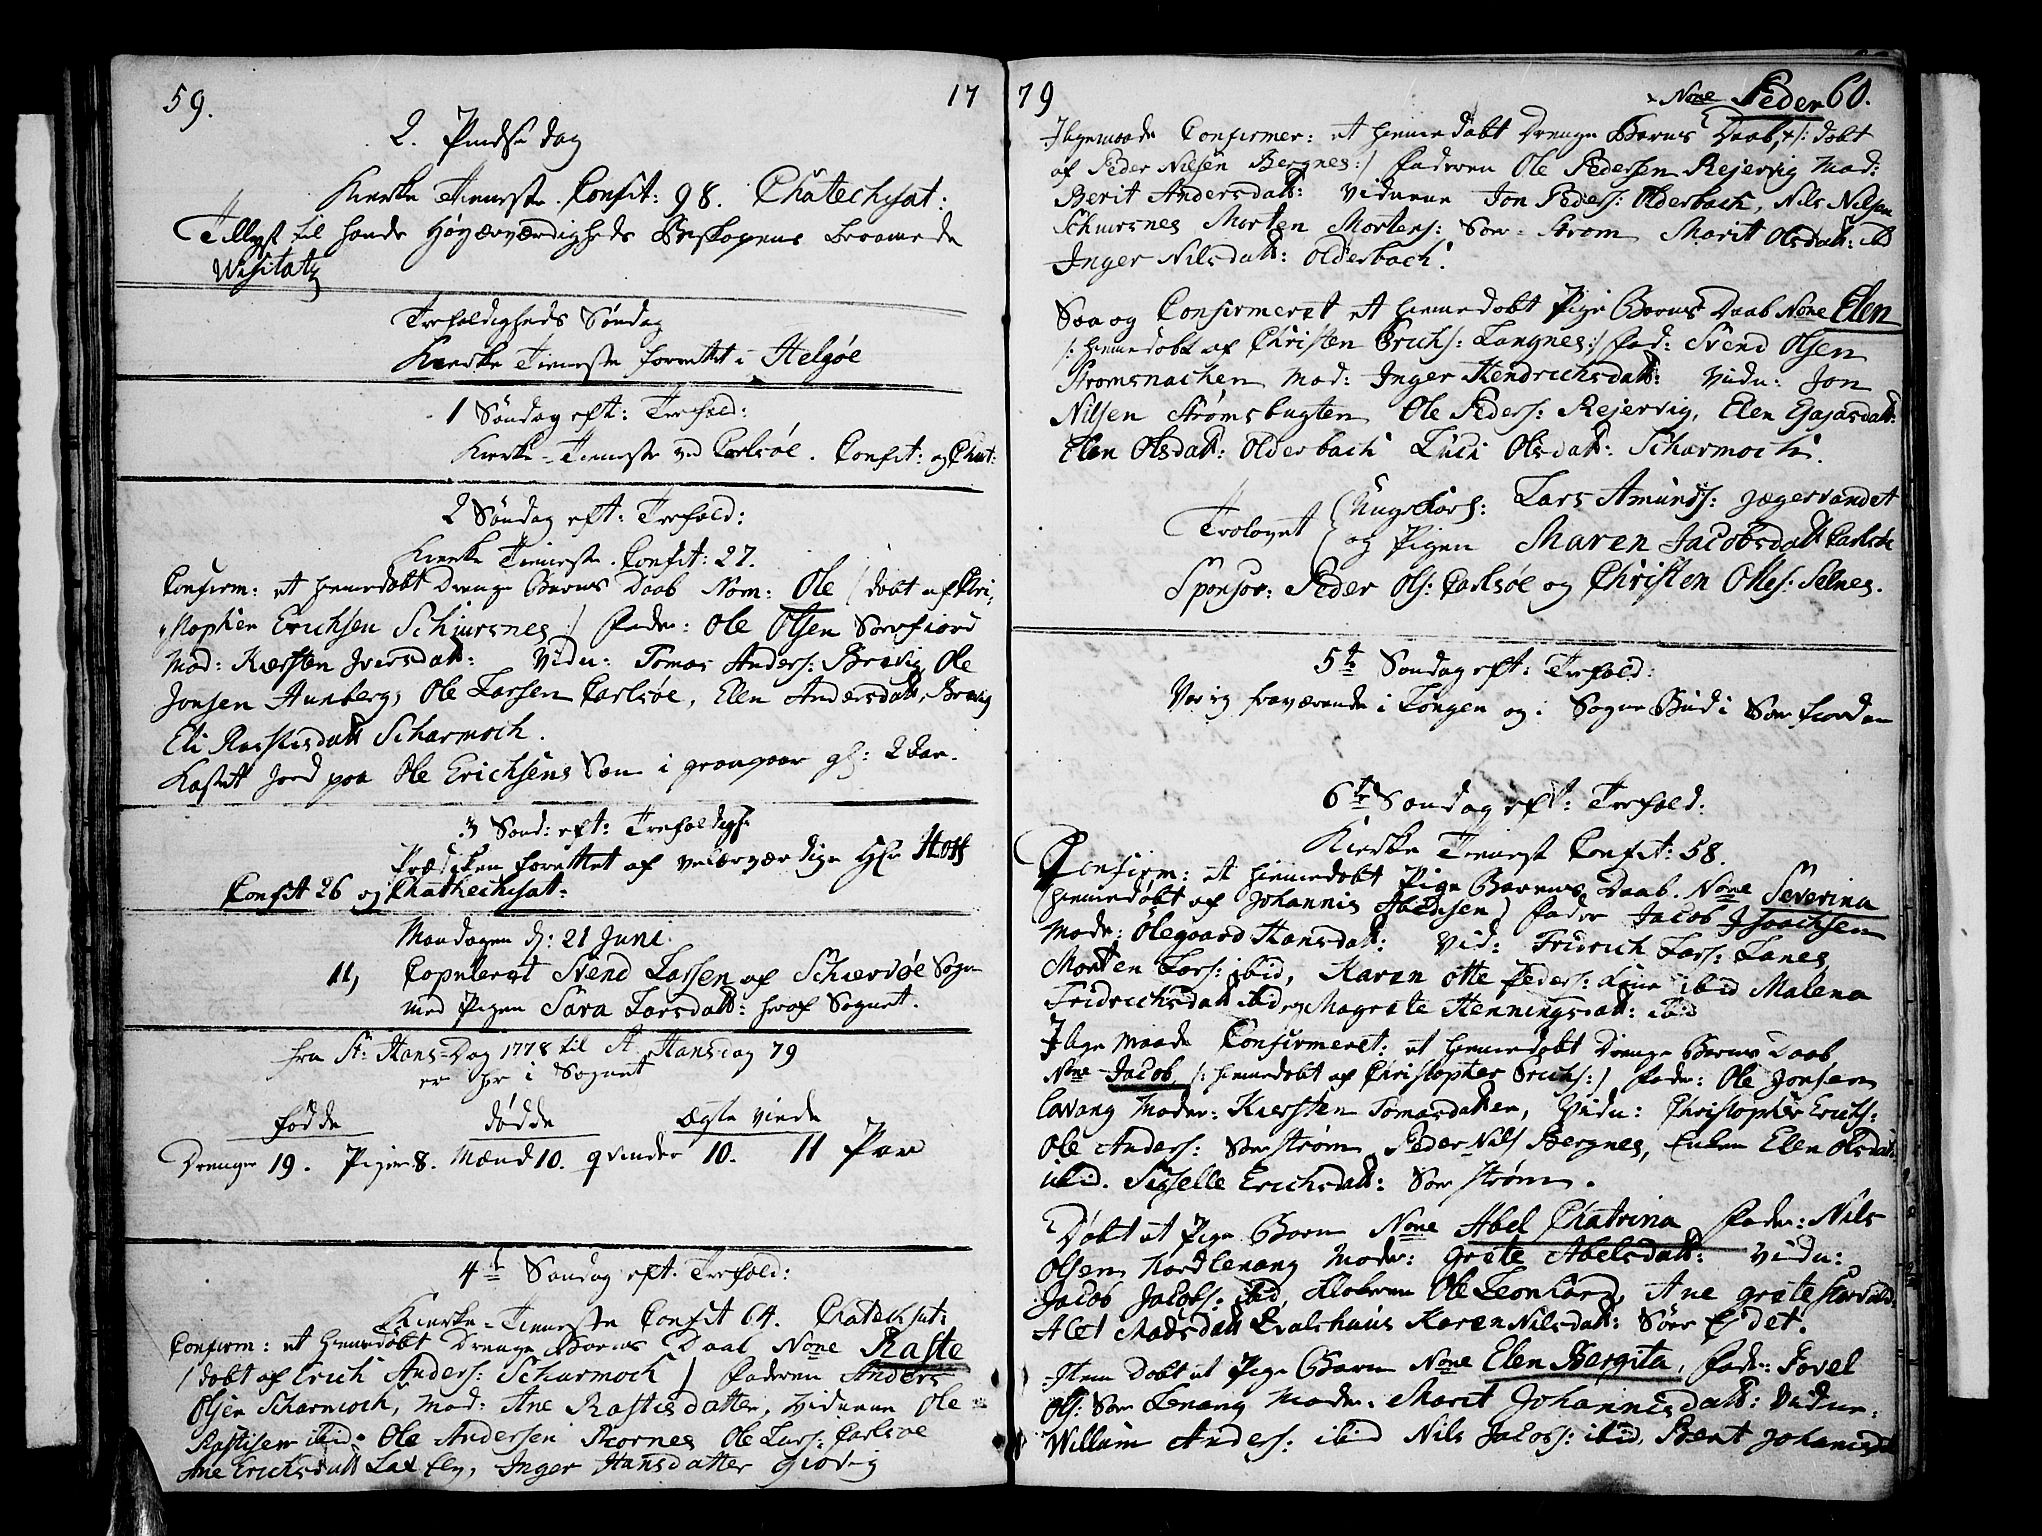 59. 17
2. Pindse dag
Kierke Tieneste. Confit: 98. Chatechisat:
Tillyst til hands Høyærværdigheds Biskopens beramede
Visitatz
Trefoldigheds Søndag
Kierke Tieneste forrettet i Helgøe
1 Søndag eft: Trefold:
Kierke-Tieneste ved Carlsøe. Confit: og Chat:
2 Søndag eft: Trefold:
Kierke Tieneste. Confit: 27.
Confirm: et hiemedøbt Drenge Barns Daab Nom: Ole / døbt af Chri-
stopher Erichsen Schiursnes :/ Fader: Ole Olsen Sørfiord
Mod: Kiersten Iversdatt: Vidn: Tomas Anders: Brevig, Ole
Jonsen Aunberg, Ole Larsen Carlsøe, Elen Andersdatt. Brevig
Eli Rastisdatt Scharmoch.
Kastet Jord paa Ole Erichsens Søn i graagaar gl: 2 Aar.
3 Sønd: eft: Trefoldigh
Prædiken forrettet af velærværdige Hr Hoff
Confit 26 og Chathechisat:
Mandagen d: 21 Juni.
11, Copuleret Svend Larsen af Schiervøe Sogn
med Pigen Sara Larsdatt: her af Sognet.
fra St: Hans-Dag 1778 til St Hansdag 79
er her i Sognet
fødde dødde Ægte viede
Drenge 19. Piger 8. Mænd 10. qvinder 10. 11 Par
4de Søndag eft. Trefold:
Kierke-Tieneste Confit 64. Chatechisat:
Confirm: et hiemedøbt Drenge Barns Daab None Raste
/ døbt af Erich Anders: Scharmoch / Faderen Anders
Olsen Scharmoch, Mod: Ane Rastisdatter, Vidnene Ole
Rastisen ibid. Ole Andersen Skornes Ole Lars: Carlsøe
Ane Erichsdatt Lax Ely, Inger Hansdatter Giøvig
79 None Peder 60.
Iligemaade Confirmer: et hiemedøbt Drenge Barns Daab, /: døbt
af Peder Nilsen Bergnes :/ Faderen Ole Pedersen Rejervig Mod:
Berit Andersdatt: Vidnene Jon Peders: Olderbach, Nils Nilsen
Schiursnes Morten Mortens: Sør-Strøm Marit Olsdatt: ibd
Inger Nilsdatt: Olderbach.
Saa og Confirmeret et hiemedøbt Pige Barns Daab None Elen
/: hiemedøbt af Christen Erichs: Langnes :/ Fad: Svend Olsen
Strømsnachen Mod: Inger Hendrichsdatt: Vidn: Jon
Nilsen Strømsbugten Ole Peders: Rejervig, Elen Ejajasdatt:
Elen Olsdatt: Olderbach Luci Olsdatt: Scharmoch.
Trolovet Ungkarl: Lars Amunds: Jægervandet
og Pigen Maren Jacobsdatt Carlsøe
Sponsor: Peder Ols: Carlsøe og Christen Oles: Selnes.
5te Søndag eft: Trefold:
Var ieg fraværende i Lyngen og i Sogne Bud i Sørfiorden
6te Søndag eft: Trefold:
Kierke Tienest Confit: 58.
Confirm: et hiemedøbt Pige Barns Daab. None Severina
hiemedøbt af Johannis Abensen / Fader Jacob Isachsen
Moder: Olegaard Hansdatt: Vid: Fridrich Lars: Lanes
Morten Lars: ibid, Karen Otte Peders: Kone ibid Malena
Fridrichsdatt ibid, Magrete Henningsdatt: ibid
Ilige Maade Confirmeret: et hiemedøbt Drenge Barns Daab
None Jacob, /: hiemedøbt af Christopher Erichs :/ Fader: Ole Jonsen
Lavang Moder: Kiersten Tomasdatter, Vidn: Christopher Erichs:
Ole Anders: Sør strøm Peder Nils Bergnes, Enken Elen Olsdatt:
ibid. Sitzelle Erichsdatt: Sør strøm.
Døbt et Pige Barn None Abel Chatrina Fader: Nils
Olsen Nordlenang Moder: Grete Abelsdatt: Vidn:
Jacob Jacobs: ibid, Klokeren Ole Leonhard, Ane Grete
Alet Madsdatt Qvalshaus Karen Nilsdatt: Sør Ejdet.
Item Døbt et Pige Barn None Elen Bergita, Fader: Povel
Ols: Sør Lenang Moder. Marit Johannisdatt: Vidn:
Willum Anders: ibid Nils Jacobs: ibid, Berit Johannisd